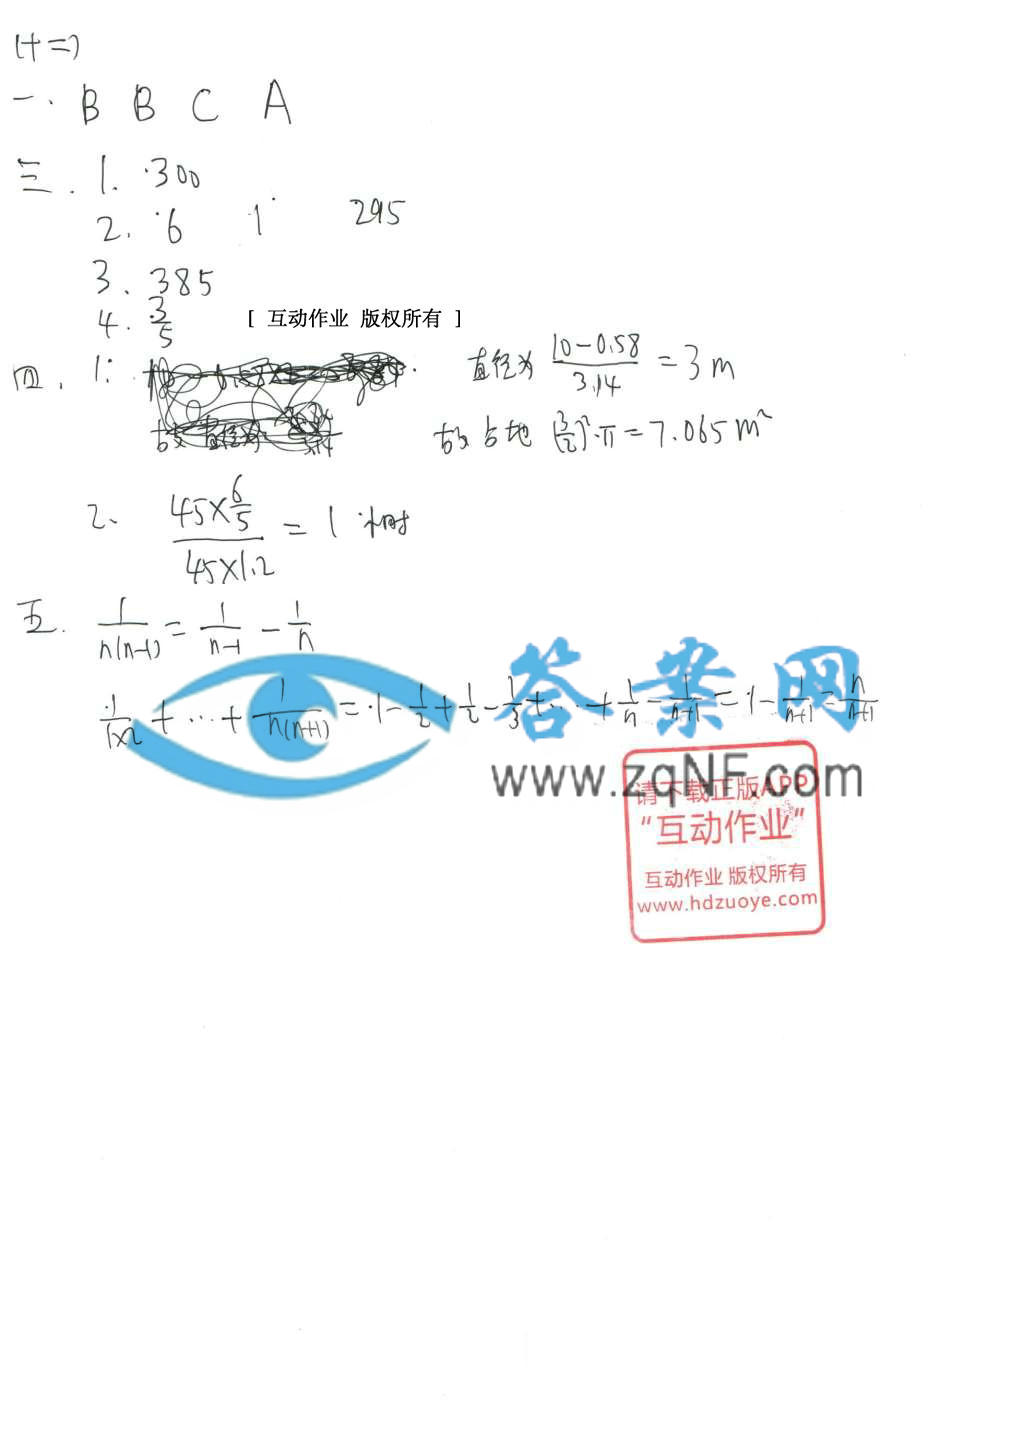 (十二)
一. B B C A
三. 1. 300
2. 6 1 295
3. 385
4. 3/5
[ 互动作业 版权所有 ]
四. 1. 直径为 (10-0.58)/3.14 = 3 m
故占地 (3/2)²·π = 7.065 m²
2. (45×6/5)/(45×1.2) = 1 小时
五. 1/(n(n-1)) = 1/(n-1) - 1/n
1/(1×2) + ... + 1/(n(n+1)) = 1 - 1/2 + 1/2 - 1/3 + ... + 1/n - 1/(n+1) = 1 - 1/(n+1) = n/(n+1)
答案网
www.zqNF.com
请下载正版APP
“互动作业”
互动作业 版权所有
www.hdzuoye.com